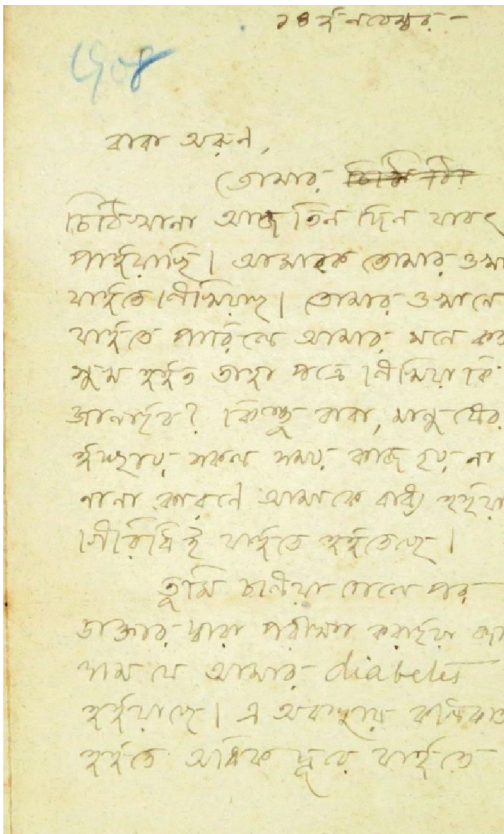 ১৪ই নবেম্বর —
বাবা অরুণ,
তোমার
চিঠিখানা আজ তিন দিন যাবৎ
পাইয়াছি। আমাকে তোমার ওখা
যাইতে লিখিয়াছ। তোমার ওখানে
যাইতে পারিলে আমার মনে কত
সুখ হইত তাহা পত্রে লিখিয়া কি
জানাইব? কিন্তু বাবা, মানুষের
ইচ্ছায় সকল সময় কাজ হয় না
নানা কারণে আমাকে বাধ্য হইয়া
গিরিধিই যাইতে হইতেছে।
তুমি চলিয়া গেলে পর
ডাক্তার দ্বারা পরীক্ষা করাইয়া
যে আমার diabetes
হইয়াছে। এ অবস্থায় কলিকাত
হইতে অধিক দূরে যাইতে